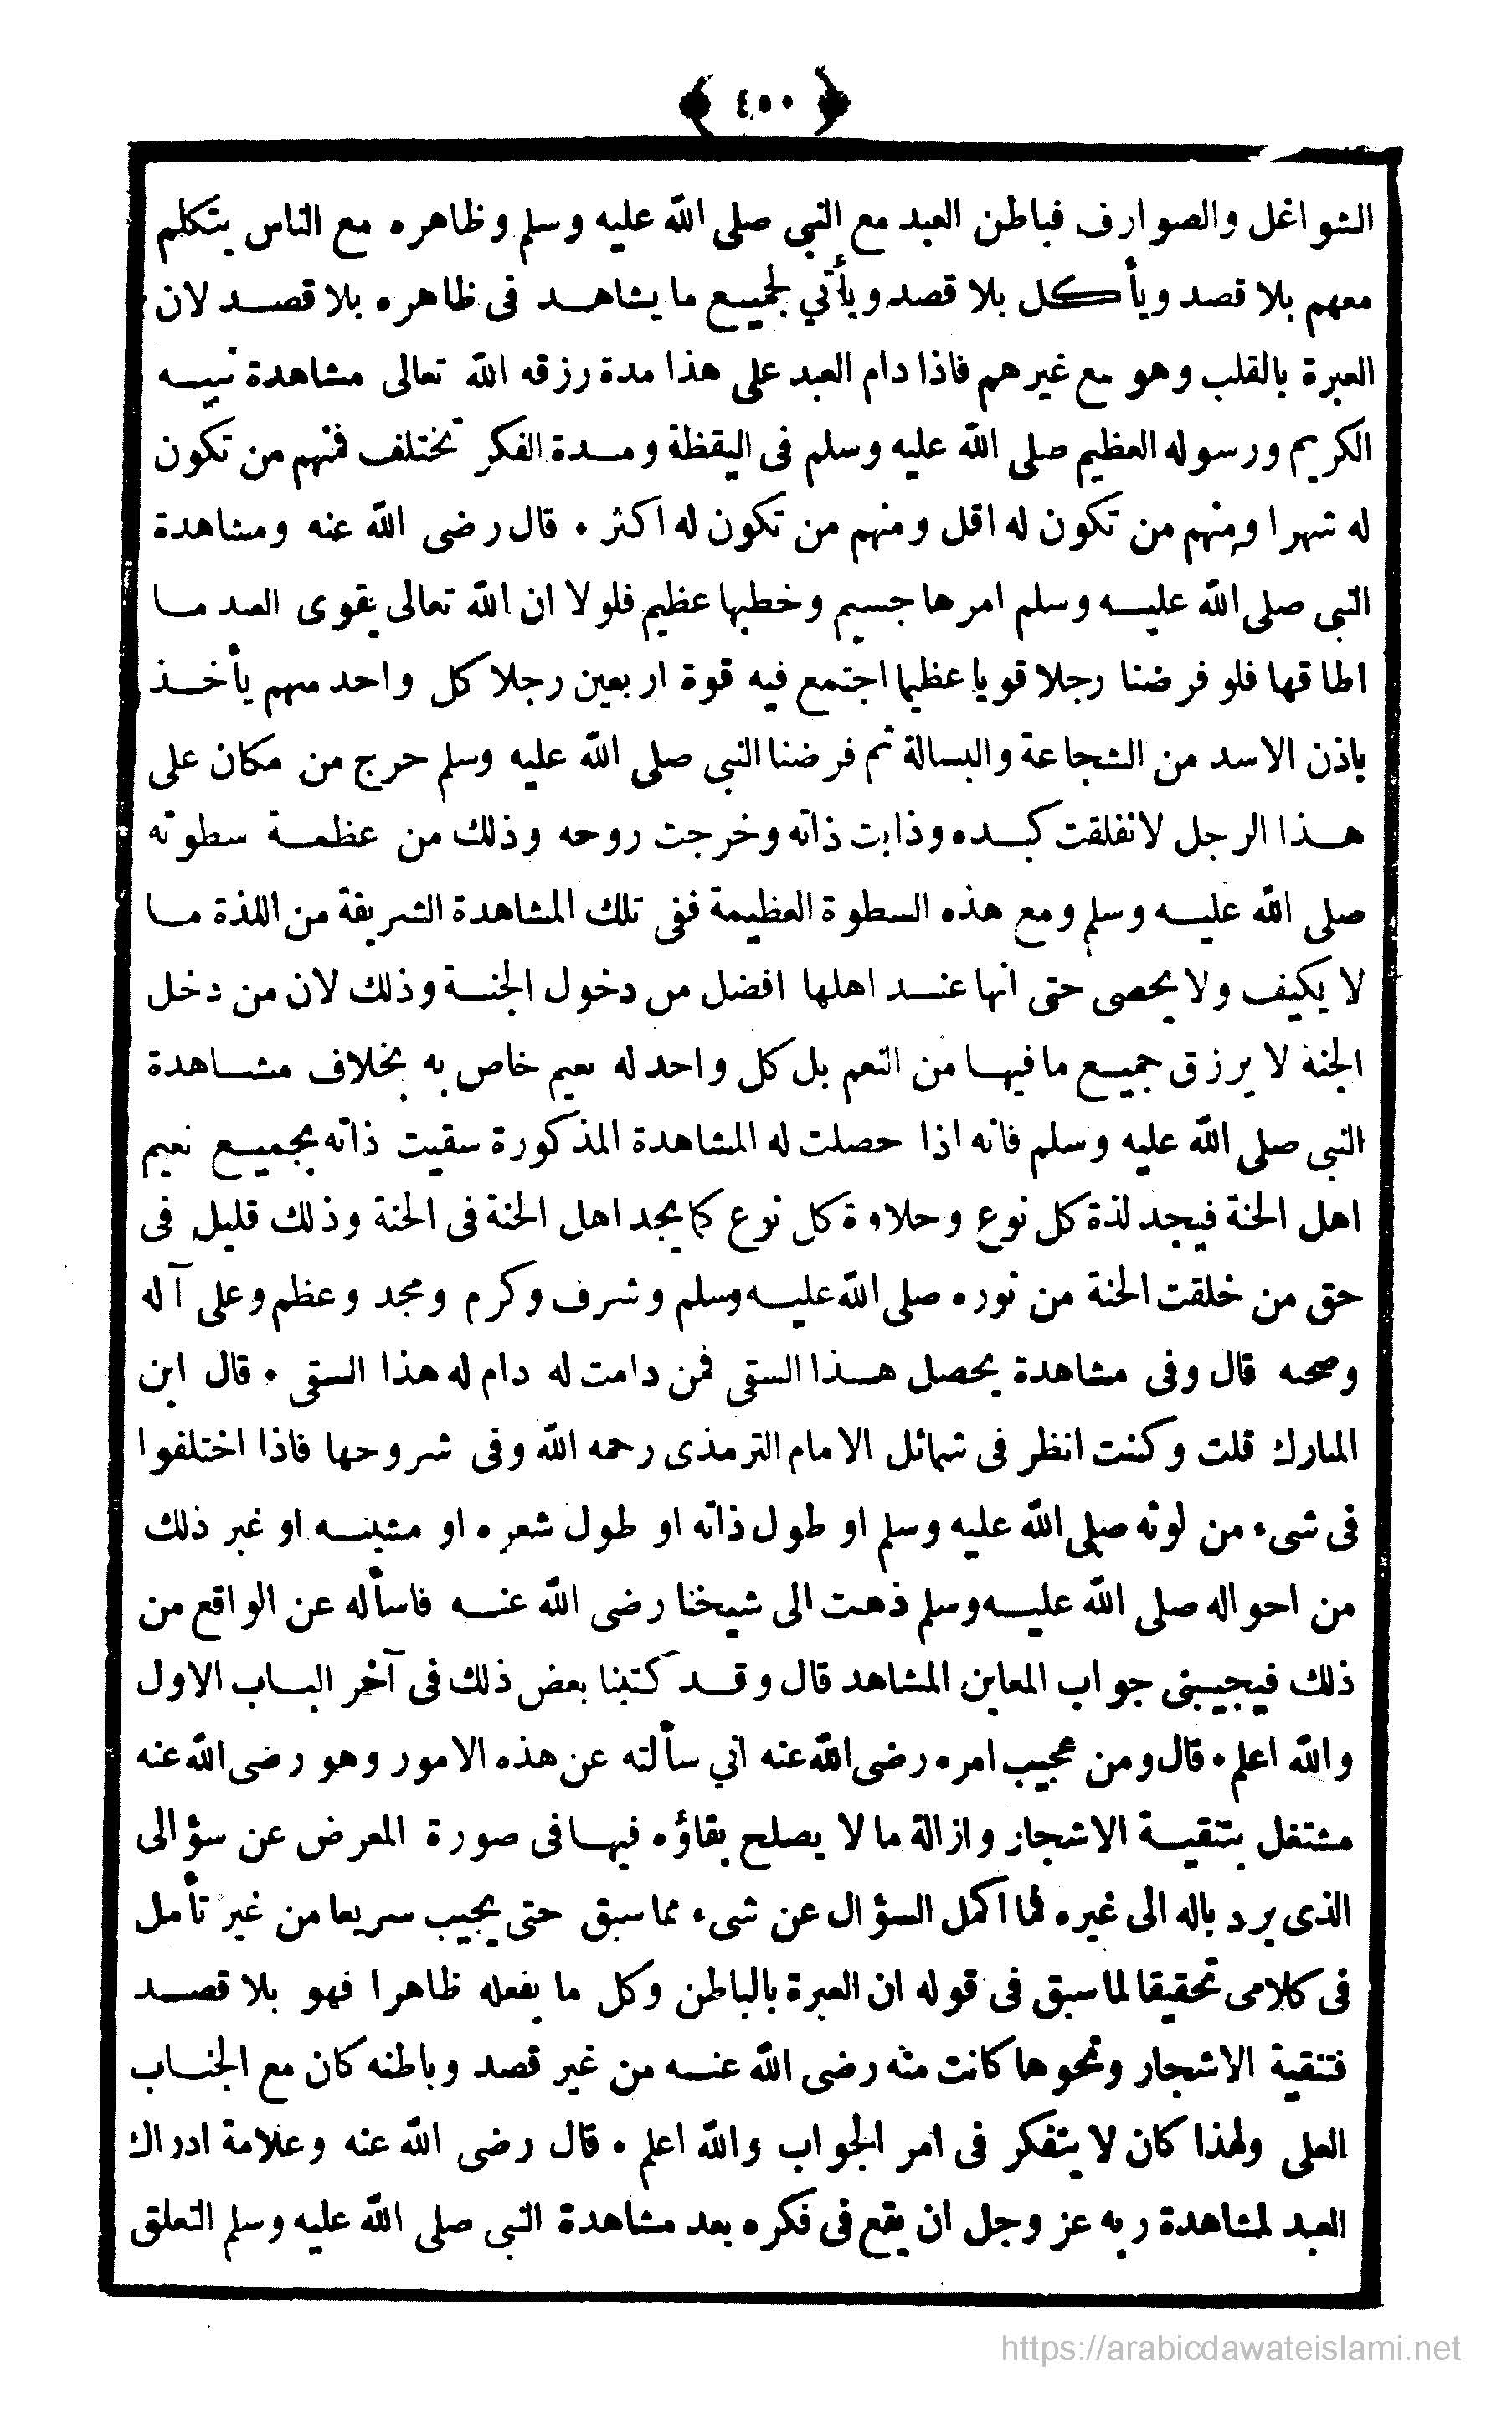 ﴿ ٤٥٠ ﴾
الشواغل والصوارف فباطن العبد مع النبى صلى الله عليه وسلم وظاهره مع الناس يتكلم
معهم بلا قصد ويأكل بلا قصد ويأتي لجميع ما يشاهد فى ظاهره بلا قصد لان
العبرة بالقلب وهو مع غيرهم فاذا دام العبد على هذا مدة رزقه الله تعالى مشاهدة نبيه
الكريم ورسوله العظيم صلى الله عليه وسلم فى اليقظة ومدة الفكر تختلف فمنهم من تكون
له شهرا ومنهم من تكون له اقل ومنهم من تكون له اكثر . قال رضى الله عنه ومشاهدة
النبى صلى الله عليه وسلم امرها جسيم وخطبها عظيم فلولا ان الله تعالى يقوى العبد ما
اطاقها فلو فرضنا رجلا قويا عظيما اجتمع فيه قوة اربعين رجلا كل واحد منهم يأخذ
باذن الاسد من الشجاعة والبسالة ثم فرضنا النبى صلى الله عليه وسلم خرج من مكان على
هذا الرجل لانفلقت كبده وذابت ذاته وخرجت روحه وذلك من عظمة سطوته
صلى الله عليه وسلم ومع هذه السطوة العظيمة ففى تلك المشاهدة الشريفة من اللذة ما
لا يكيف ولا يحصى حتى انها عند اهلها افضل من دخول الجنة وذلك لان من دخل
الجنة لا يرزق جميع ما فيها من النعم بل كل واحد له نعيم خاص به بخلاف مشاهدة
النبى صلى الله عليه وسلم فانه اذا حصلت له المشاهدة المذكورة سقيت ذاته بجميع نعيم
اهل الجنة فيجد لذة كل نوع وحلاوة كل نوع كما يجد اهل الجنة فى الجنة وذلك قليل فى
حق من خلقت الجنة من نوره صلى الله عليه وسلم وشرف وكرم ومجد وعظم وعلى آله
وصحبه قال وفى مشاهدة يحصل هذا السقى فمن دامت له دام له هذا السقى . قال ابن
المبارك قلت وكنت انظر فى شمائل الامام الترمذى رحمه الله وفى شروحها فاذا اختلفوا
فى شىء من لونه صلى الله عليه وسلم او طول ذاته او طول شعره او مشيه او غير ذلك
من احواله صلى الله عليه وسلم ذهبت الى شيخنا رضى الله عنه فاسأله عن الواقع من
ذلك فيجيبنى جواب المعاين المشاهد قال وقد كتبنا بعض ذلك فى آخر الباب الاول
والله اعلم . قال ومن عجيب امره رضى الله عنه اني سألته عن هذه الامور وهو رضى الله عنه
مشتغل بتنقية الاشجار وازالة ما لا يصلح بقاؤه فيها فى صورة المعرض عن سؤالى
الذى يرد باله الى غيره فما اكمل السؤال عن شىء مما سبق حتى يجيب سريعا من غير تأمل
فى كلامى تحقيقا لما سبق فى قوله ان العبرة بالباطن وكل ما يفعله ظاهرا فهو بلا قصد
فتنقية الاشجار ونحوها كانت منه رضى الله عنه من غير قصد وباطنه كان مع الجناب
العلى ولهذا كان لا يتفكر فى امر الجواب والله اعلم . قال رضى الله عنه وعلامة ادراك
العبد لمشاهدة ربه عز وجل ان يقع فى فكره بعد مشاهدة النبى صلى الله عليه وسلم التعلق
https://arabicdawateislami.net